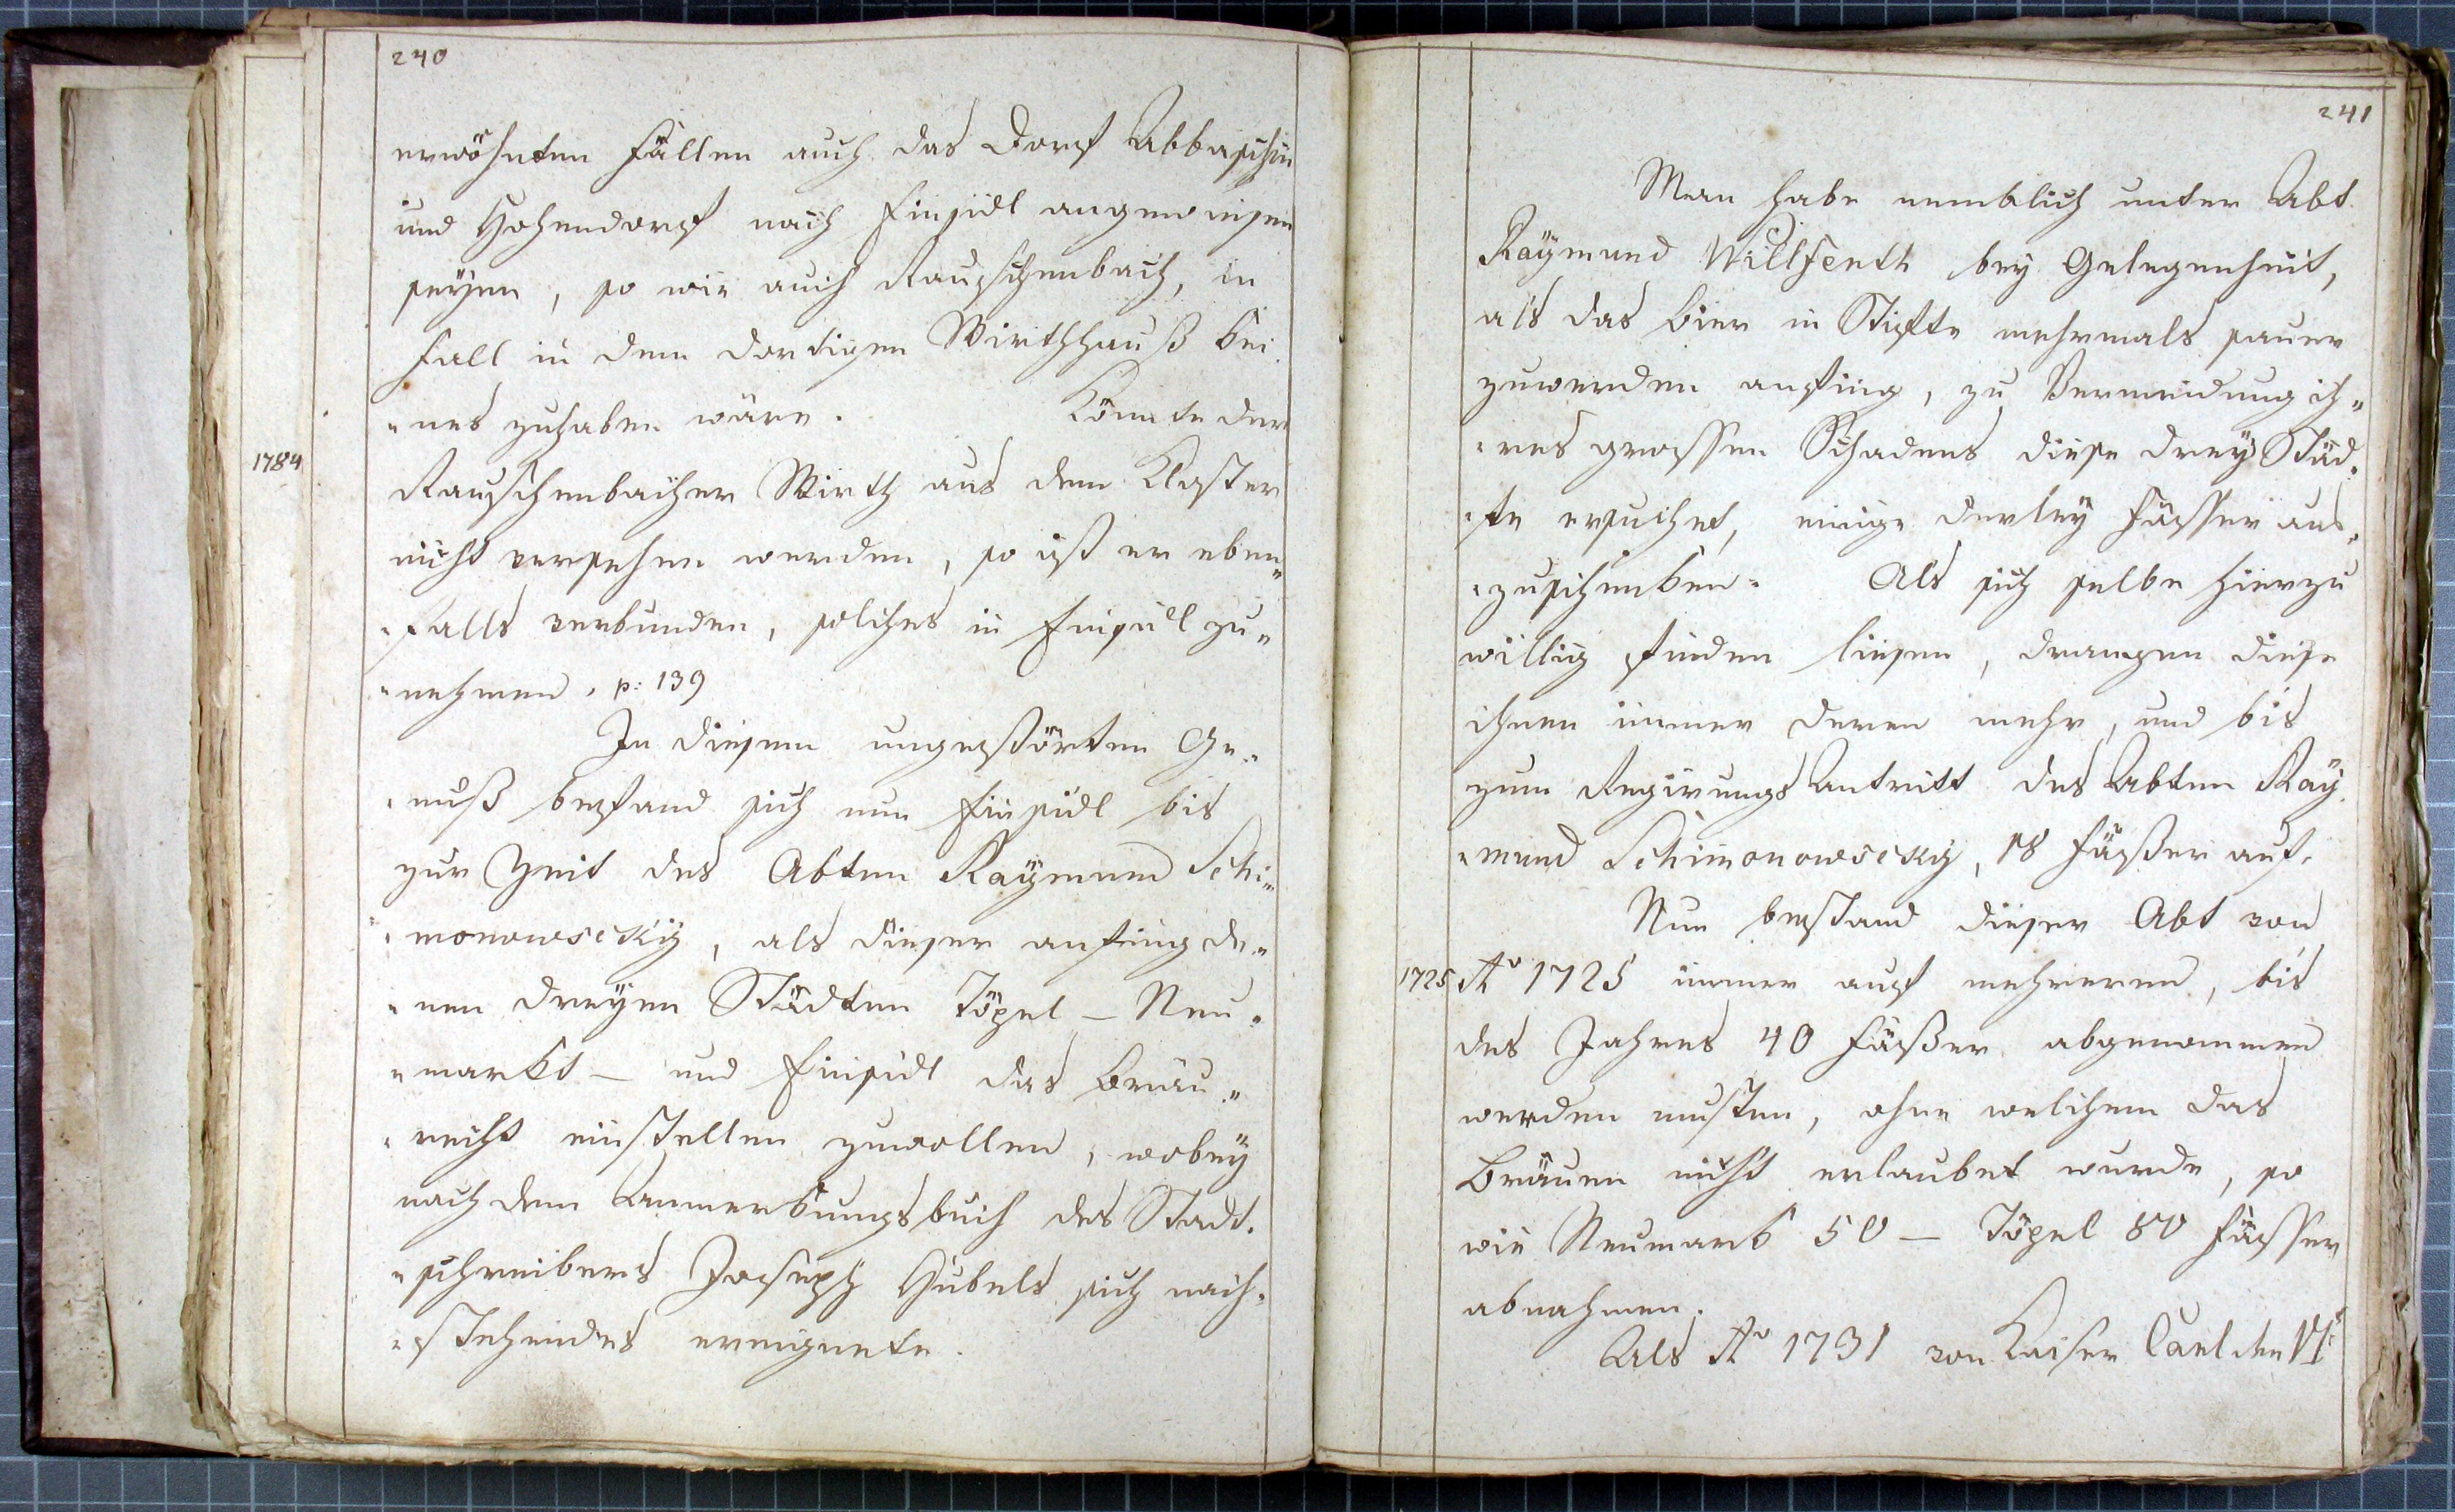 240
erwöhnten Fällen auch das Dorf Abbaschin
und Hohendorf nach Einsidl angewiesen
seyen, so wie auch Rauschenbach, in
Fall in dem dortigen Wirthhauß kei„
„nes zuhaben wäre. Könnte der
1784
Rauschenbacher Wirth aus dem Kloster
nicht versehen werden, so ist er eben„
„falls verbunden, solches in Einsidl zu„
„nehmen. p: 139
In diesem ungestörten Ge„
„nuß befand sich nun Einsidl bis
zur Zeit des Abten Raÿmund Schi„
„monowscky, als dieser anfing de„
„nen dreyen Städten Töpel – Neu„
„markt – und Einsidl das Bräu„
„recht einstellen zuwollen, wobey
nach dem Anmerkungsbuch des Stadt„
„schreibers Joseph Hübels sich nach„
„stehendes ereignete.
241
Man habe nemblich unter Abt
Raÿmund Willfenth bey Gelegenheit,
als das Bier in Stifte mehrmals sauer
zuwerden anfing, zu Vermeidung ih„
„res grossen Schadens diese drey Städ„
„te ersuchet, einige derley Fässer aus„
„zuschenken. Als sich selbe hierzu
willig finden liesen, drangen diese
ihnen immer deren mehr, und bis
zum Regirungs Antritt des Abten Raÿ„
„mund Schimonowscky, 18 Fäßer auf.
Nun bestand dieser Abt von
1725
Aº 1725 immer auf mehreren, bis
des Jahres 40 Fäßer abgenommen
werden musten, ohne welchem das
Bräuen nicht erlaubet wurde, so
wie Neumark 50 – Töpel 80 Fässer
abnahmen.
Als Aº 1731 von Kaiser Carl den VI